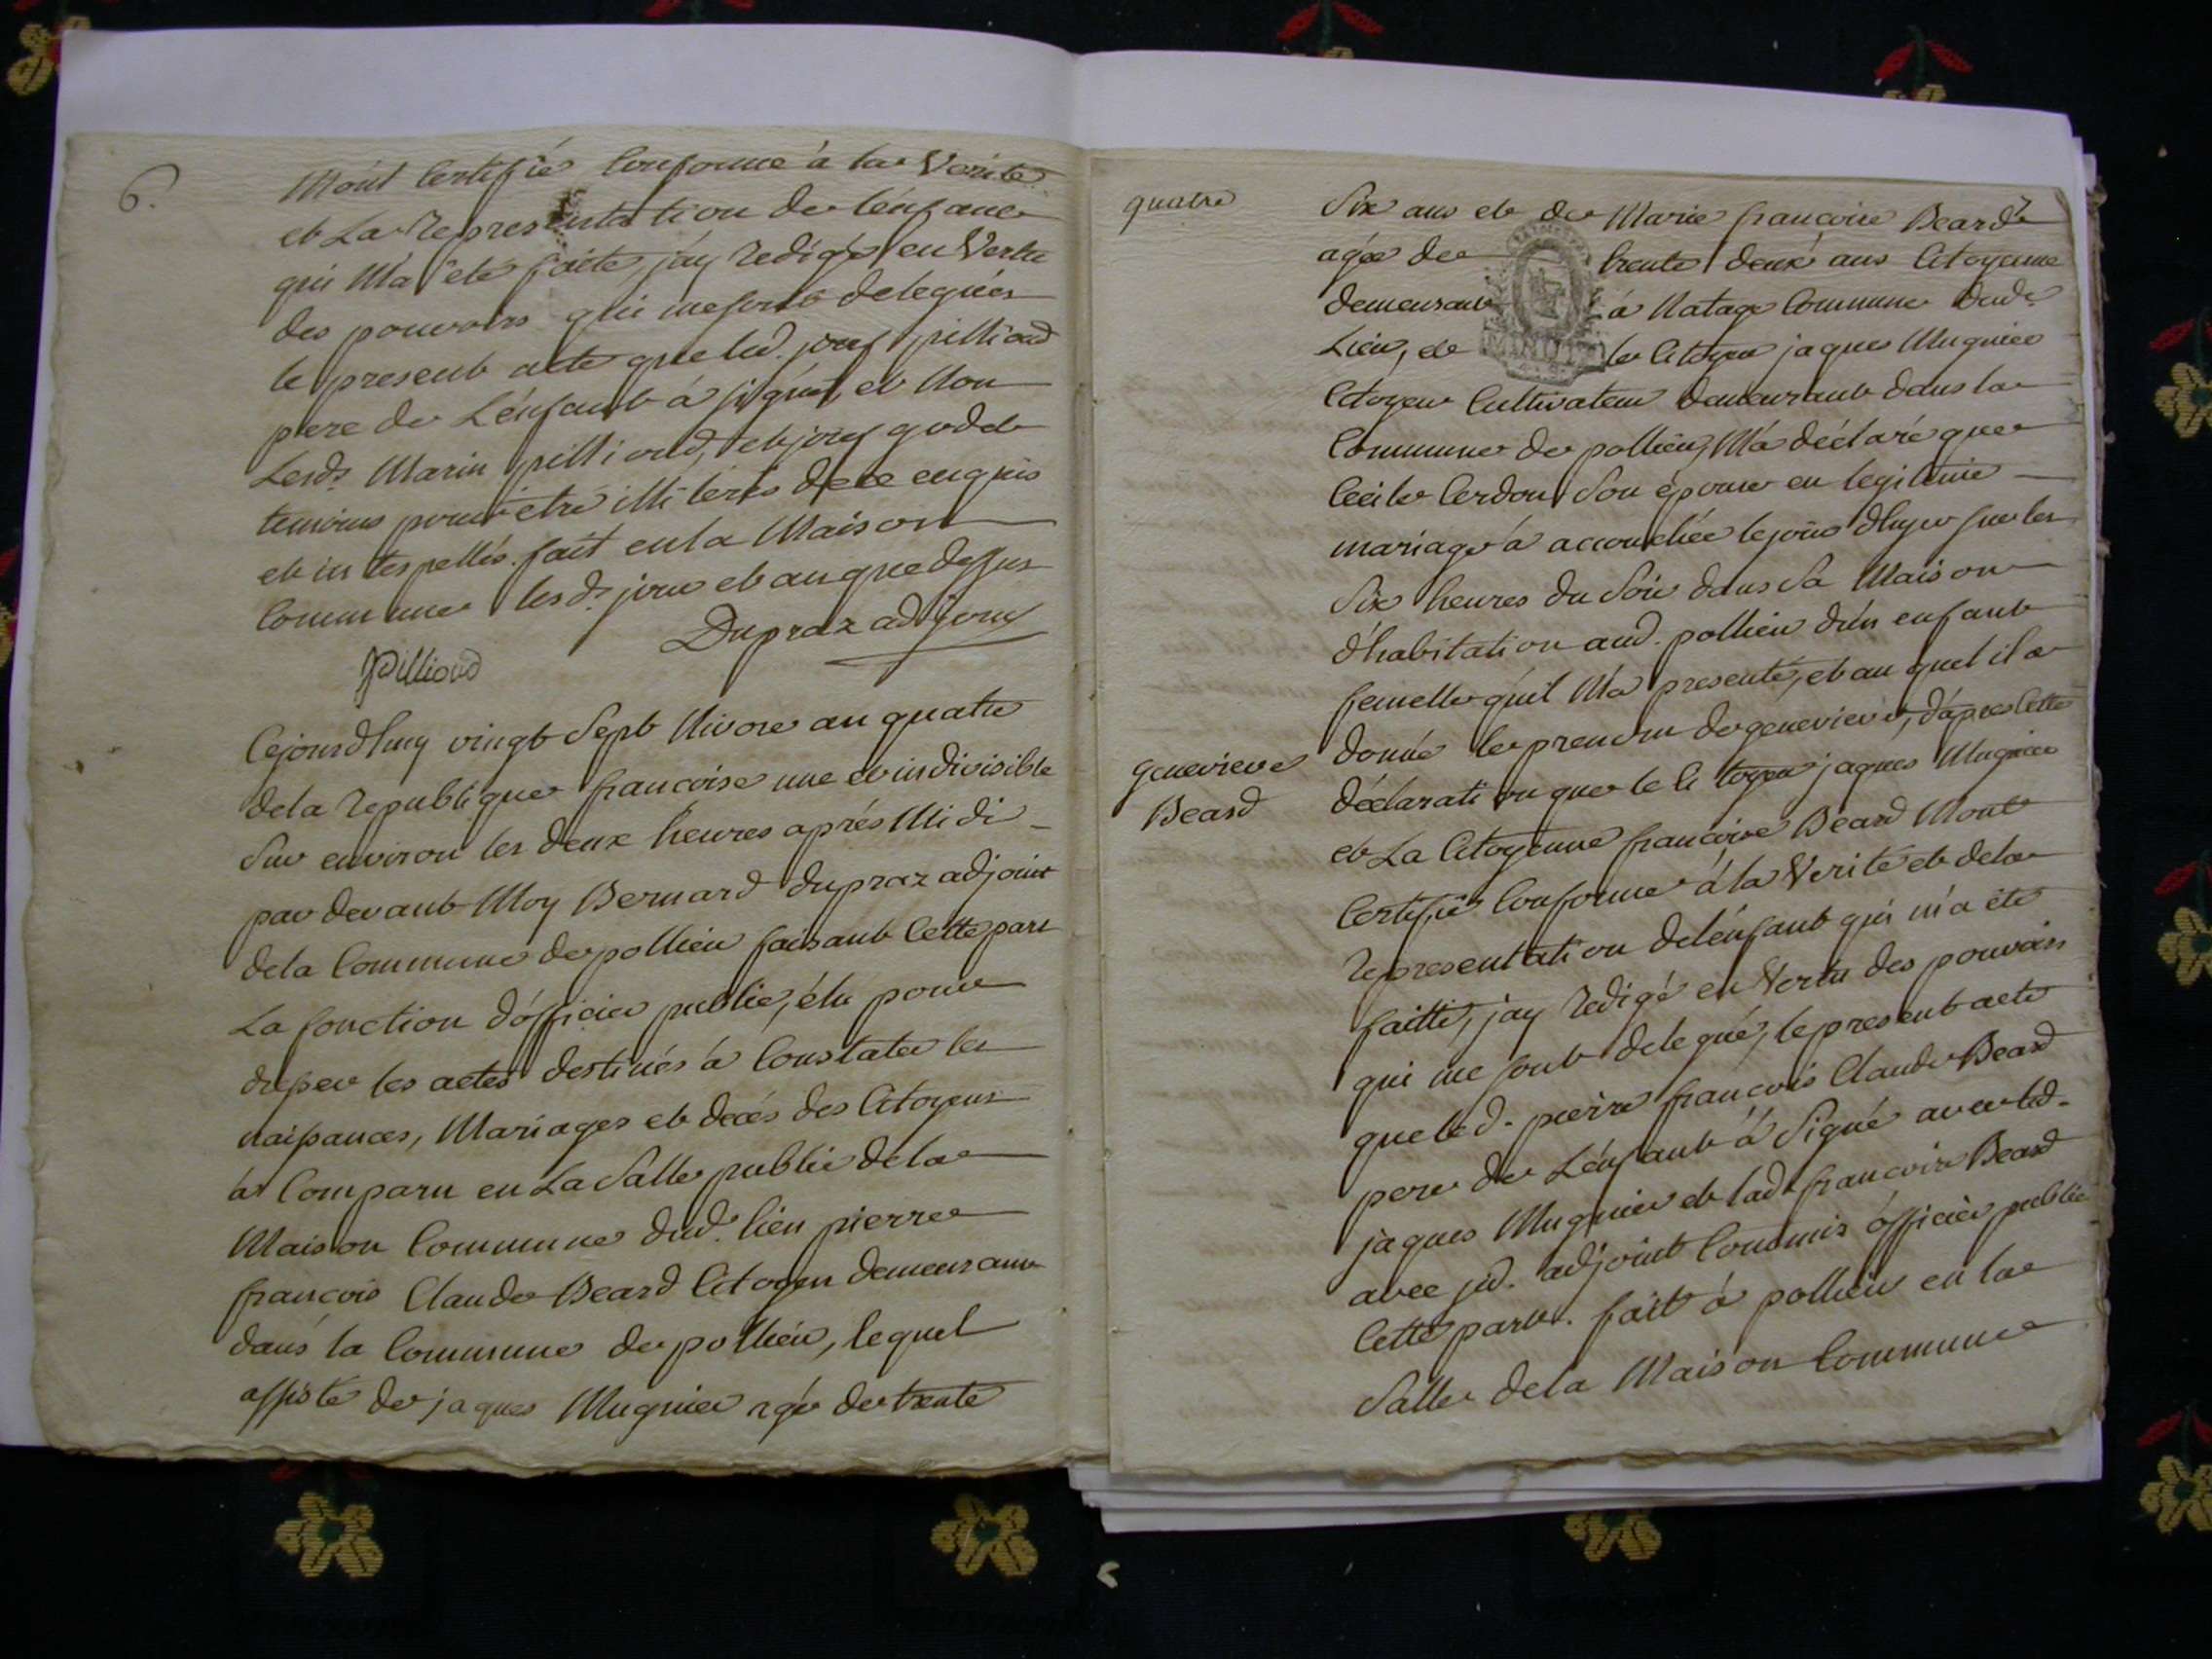 6.
M'ont Certifié Conforme à la Verité
et La Representation de L'enfance
qui M'a été faite, j'ay Redigé en Vertu
des pouvoirs qui me sont delegués
le present acte que led. josef pilliond
pere de L'énfant à signé, et Non
Lesds. Marin pilliond, et josef godet
temoins pour être illiterés de ce enquis
et interpellés. fait en la Maison
Commune lesd. jour et an que dessus
Dupraz adjoint
Pilliond
Cejourdhuy vingt Sept Nivose an quatre
de la Republique francoise une et indivisible
Sur environ les deux heures aprés Midi
par devant Moy Bernard dupraz adjoint
de la Commune de pollieu faisant Cette part
La fonction d'officier public, élu pour
dresser les actes destinés à Constater les
naissances, Mariages et decés des Citoyens
a Comparu en La Salle public de la
Maison Commune dud. lieu pierre
francois Claude Beard Citoyen demeurant
dans la Commune de pollieu, lequel
assisté de jaques Mugnier agé de trente
quatre
Six ans et de Marie francoise Beard
agée de trente deux ans Citoyenne
demeurant à Natage Commune dud.
Lieu, et le Citoyen jaques Mugnier
Citoyen Cultivateur demeurant dans la
Commune de pollieu, M'a déclaré que
Cecile Cerdon Son épouse en legitime
mariage à accouchée le jour d'hyer sur les
Six heures du Soir dans Sa Maison
d'habitation aud. pollieu d'un enfant
femelle qu'il M'a presenté, et au quel il a
donné le prenom de genevieve, d'apres Cette
genevieve
Beard
déclaration que le Citoyen jaques Mugnier
et La Citoyenne francoise Beard M'ont
Certifié Conforme à la Verité et de la
Representation de l'énfant qui m'a été
faitte, j'ay Redigé en Vertu des pouvoirs
qui me sont delegué, le present acte
que led. pierre francois Claude Beard
pere de L'énfant à Signé avec led.
jaques Mugnier et lad. francoise Beard
avec jd. adjoint Commis officier public
Cette part. fait à pollieu en la
Salle de la Maison Commune